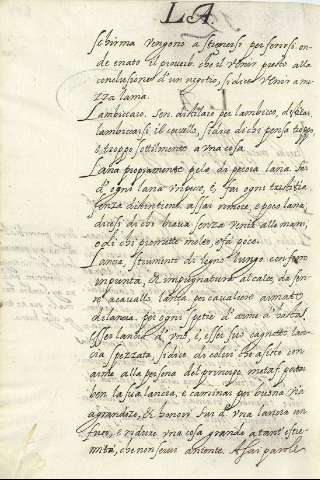 LA
scherma vengono a strinersi per ferirsi. on-
de e nato il proverb. che il venir presto alla
conclusione d'un negotio, si dice venir a me-
zza lama.
Lambiccare. Son. distilare per lambicco,
lambiccarsi il cervello, si dice di chi pensa troppo,
e troppo sottilmente a una cosa.
Lana propriamente pelo di pecora lana. far
d'ogni lana un peso, è, far ogni tristitia
senza distintione, assai romore, e poco lana,
dicesi di chi brava senza venir alle mani,
o di chi promette molto, e fa poco.
Lancia, strumento di legno lungo con ferro
in punta, et impugnatura al calce, da feri-
re a cavallo. lancia per cavaliere armato
di lancia. per ogni spetie d'arme d'hasta.
Esser lancia d'uno, è, esser suo cagnotto, lan-
cia spezzata, si dice di colui che assiste con
arme alla persona del principe metaf. portar
ben la sua lancia, è caminar per buona via
a grandezze, et honori far d'una lancia un
fuso, è ridurre una cosa grande a tant' estre-
mità, che non servi a niente. Assai parole